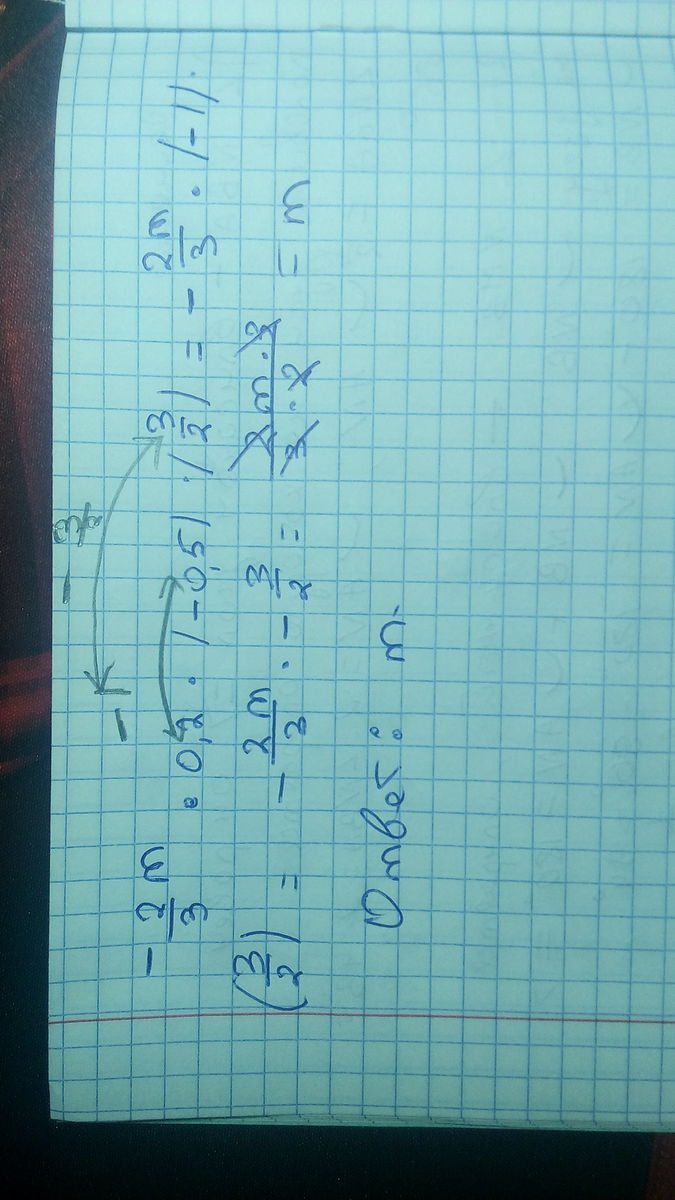 - 3/2
- 1
- 2m/3 · 0,2 · (-0,5) · (3/2) = - 2m/3 · (-1) ·
(3/2) = - 2m/3 · - 3/2 = 2m·3/3·2 = m
Ответ: m.